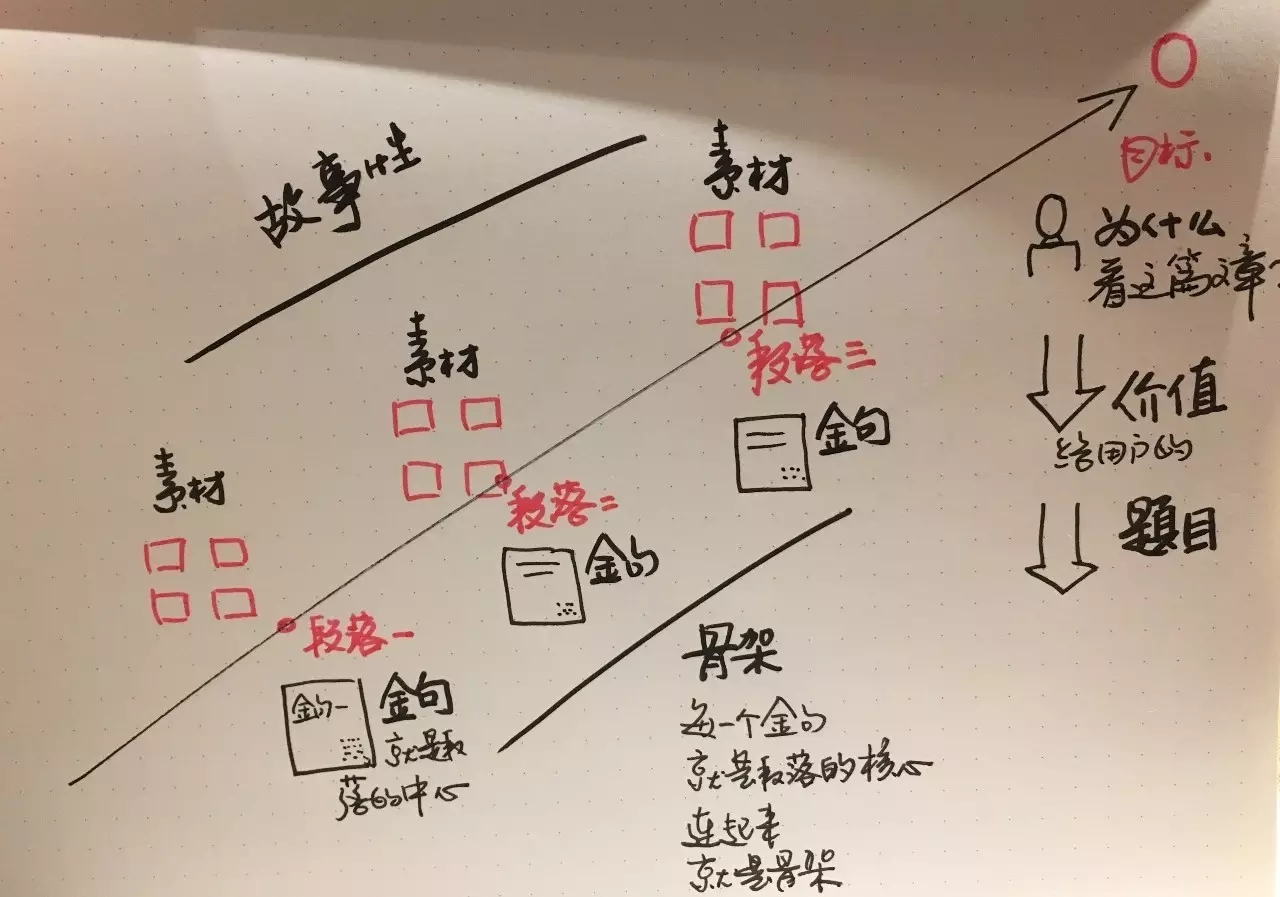 故事性
素材
目标.
为什么
看这篇文章?
素材
段落三
价值
给用户的
金句
素材
段落二
题目
金句
段落一
骨架
金句一
金句
就是段
落的中心
每一个金句
就是段落的核心
连起来
就是骨架